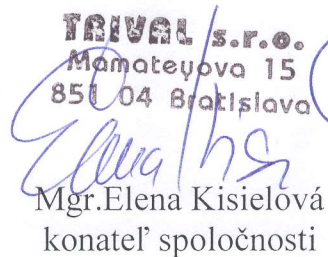 TRIVAL s.r.o.
Mamateyova 15
851 04 Bratislava
Mgr.Elena Kisielová
konateľ spoločnosti